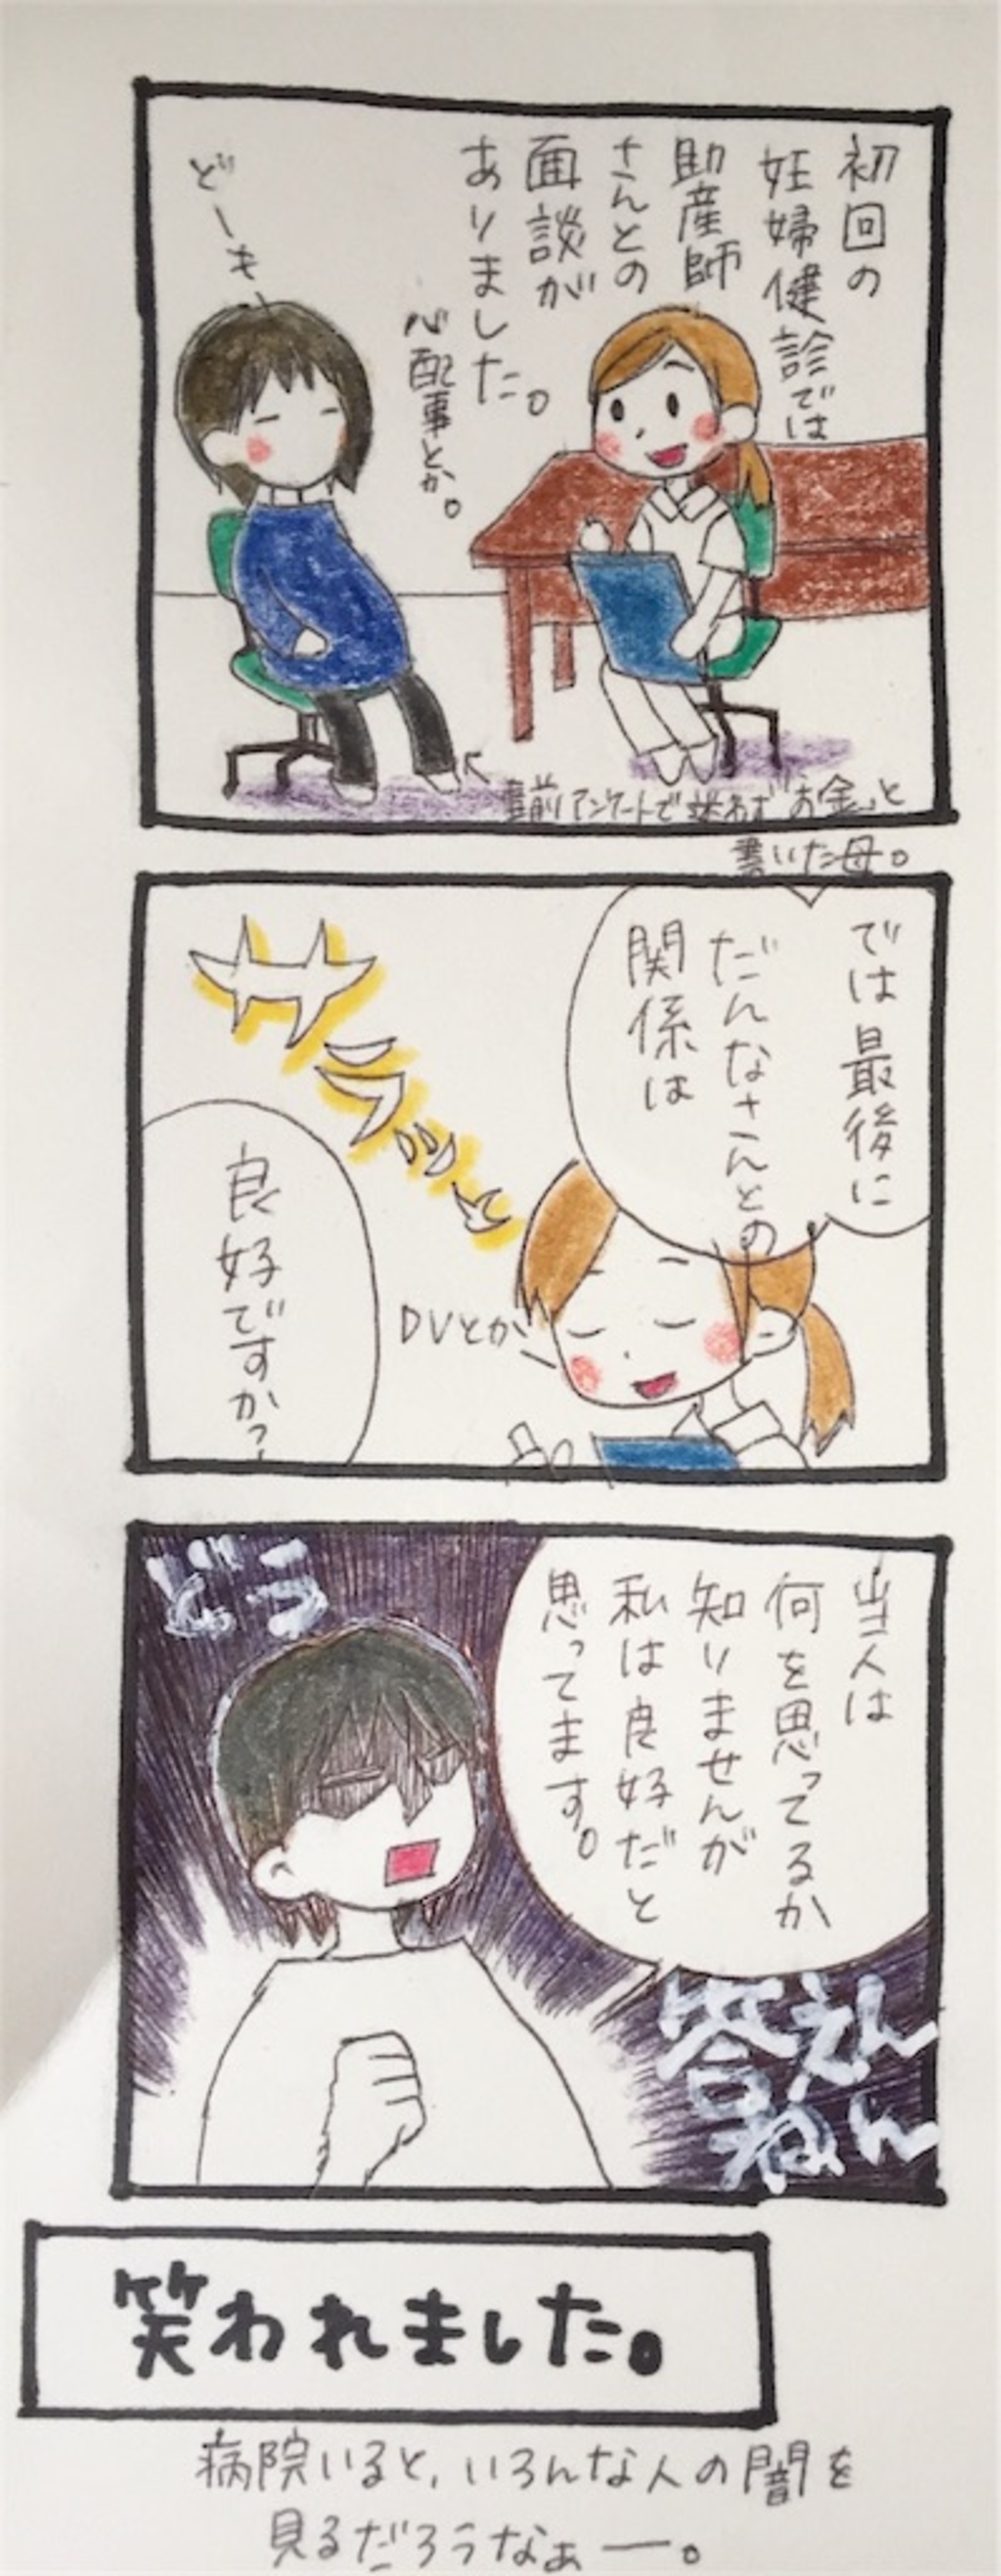 初回の
妊婦健診では
助産師
さんとの
面談が
ありました。
心配事とか。
どーも
事前アンケートで迷わず“お金”と
書いた母。
では最後に
だんなさんとの
関係は
サラッと
DVとか
良好ですか?
当人は
何を思ってるか
知りませんが
私は良好だと
思ってます。
どう
答えん
ねん
笑われました。
病院いると、いろんな人の闇を
見るだろうなぁー。